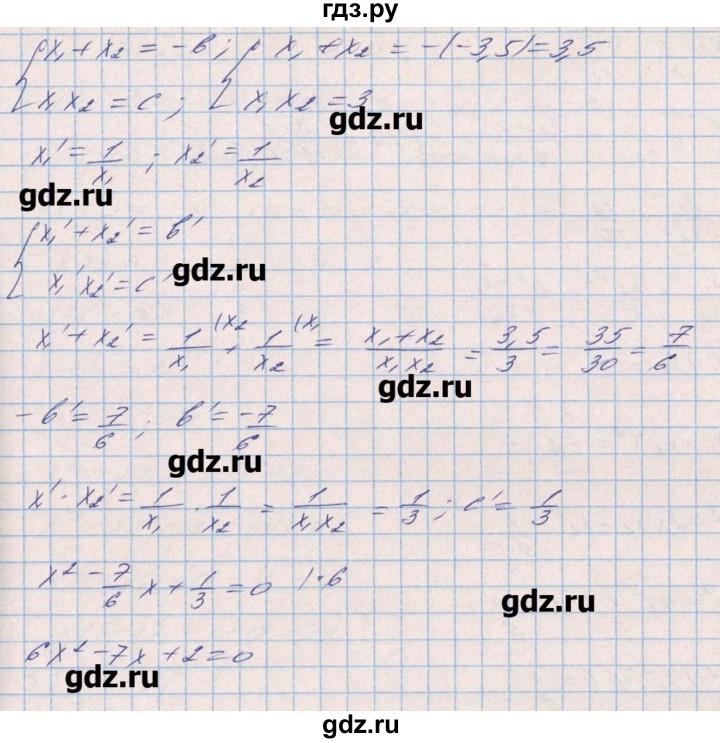 гдз.ру
{ x₁ + x₂ = -b ; { x₁ + x₂ = -(-3,5) = 3,5
{ x₁ x₂ = c ; { x₁ x₂ = 3
gdz.ru
x₁' = 1/x₁ ; x₂' = 1/x₂
gdz.ru
{ x₁' + x₂' = b'
gdz.ru
{ x₁' x₂' = c'
x₁' + x₂' = 1/x₁ (x₂ + 1/x₂ (x₁ = (x₁ + x₂)/(x₁ x₂) = 3,5/3 = 35/30 = 7/6
gdz.ru
-b' = 7/6 ; b' = -7/6
gdz.ru
x' · x₂' = 1/x₁ · 1/x₂ = 1/(x₁ x₂) = 1/3 ; c' = 1/3
x² - 7/6 x + 1/3 = 0 |·6
gdz.ru
6x² - 7x + 2 = 0
gdz.ru
gdz.ru